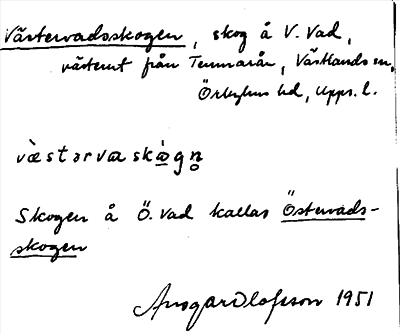 Västervadsskogen, skog å V. Vad,
västerut från Temmarån, Västlands sn,
Örbyhus hd, Upps. l.
væ̀stərvaskɷ̀gn̥
Skogen å Ö. Vad kallas Östervads-
skogen
Ansgar Olofsson 1951